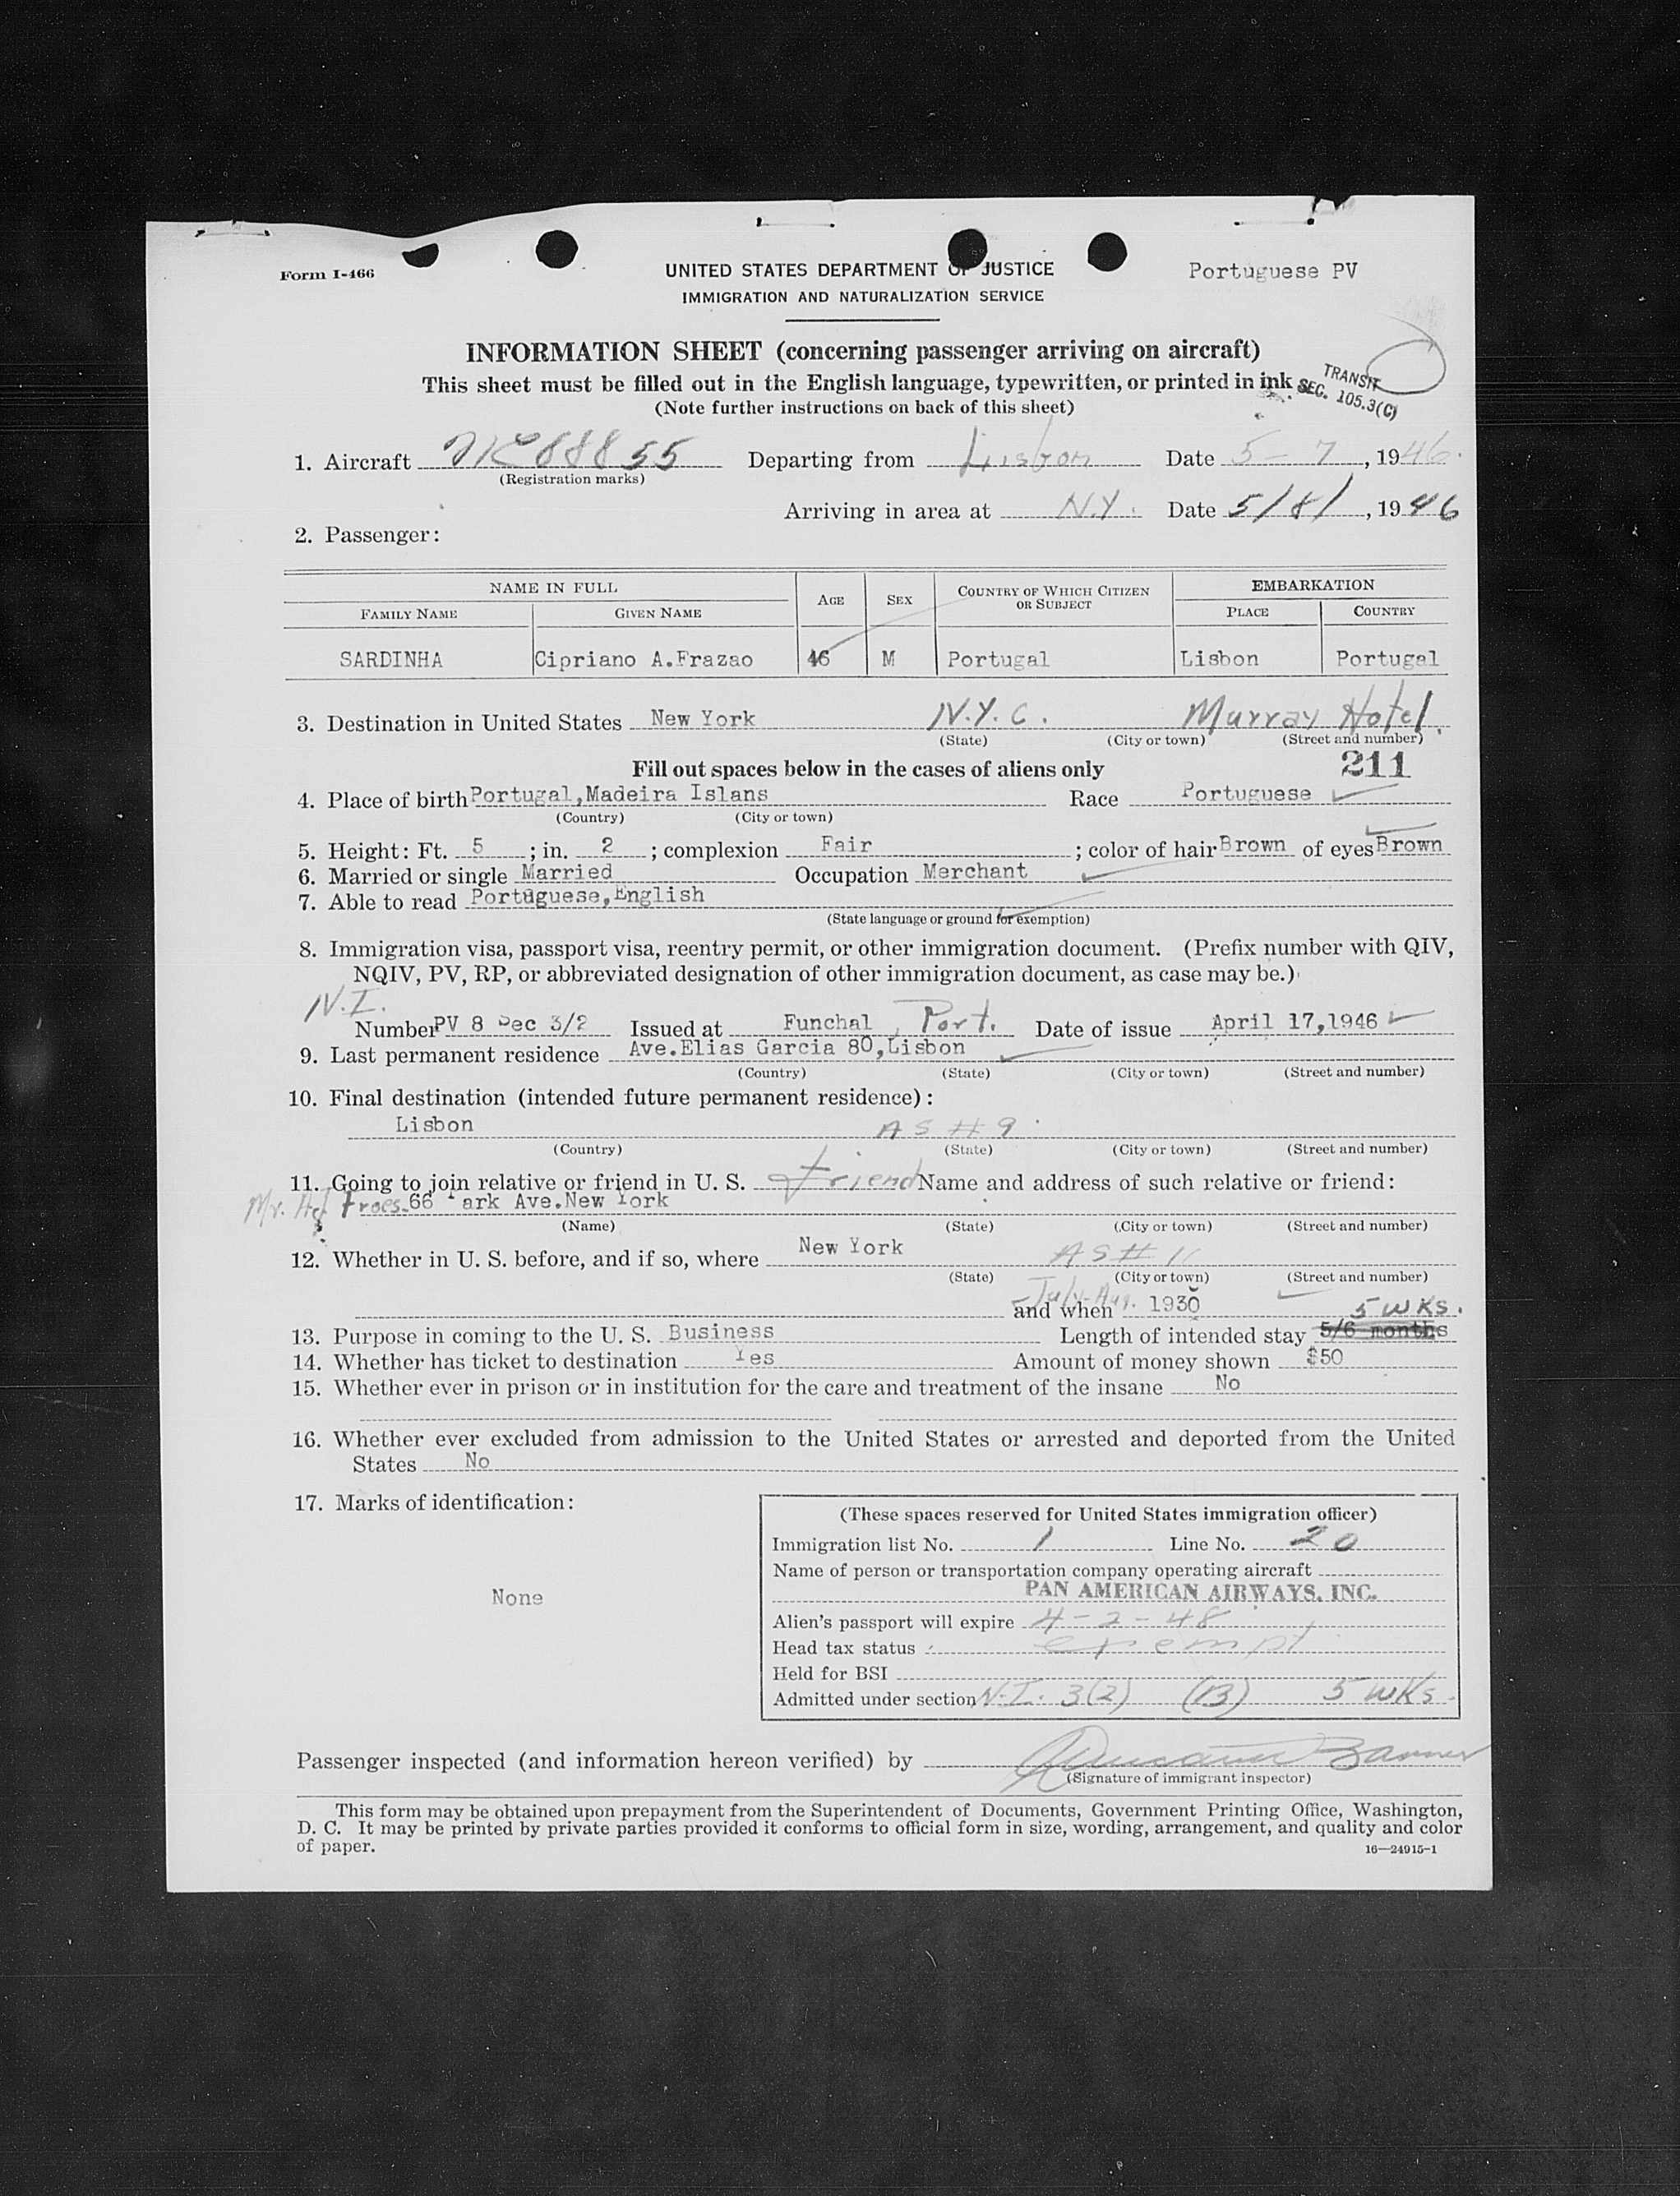 Form I-466
UNITED STATES DEPARTMENT OF JUSTICE
IMMIGRATION AND NATURALIZATION SERVICE
Portuguese PV
INFORMATION SHEET (concerning passenger arriving on aircraft)
This sheet must be filled out in the English language, typewritten, or printed in ink
(Note further instructions on back of this sheet)
TRANSIT
SEC. 105.3(C)
1. Aircraft NC88855 Departing from Lisbon Date 5-7, 1946.
(Registration marks)
Arriving in area at N.Y. Date 5/8/, 1946
2. Passenger:
NAME IN FULL AGE SEX COUNTRY OF WHICH CITIZEN OR SUBJECT EMBARKATION
FAMILY NAME GIVEN NAME PLACE COUNTRY
SARDINHA Cipriano A.Frazao 46 M Portugal Lisbon Portugal
3. Destination in United States New York N.Y.C. Murray Hotel
(State) (City or town) (Street and number)
Fill out spaces below in the cases of aliens only 211
4. Place of birth Portugal,Madeira Islans Race Portuguese
(Country) (City or town)
5. Height: Ft. 5; in. 2; complexion Fair; color of hair Brown of eyes Brown
6. Married or single Married Occupation Merchant
7. Able to read Portuguese,English
(State language or ground for exemption)
8. Immigration visa, passport visa, reentry permit, or other immigration document. (Prefix number with QIV,
NQIV, PV, RP, or abbreviated designation of other immigration document, as case may be.)
N.I.
Number PV 8 Sec 3/2 Issued at Funchal, Port. Date of issue April 17,1946
9. Last permanent residence Ave.Elias Garcia 80,Lisbon
(Country) (State) (City or town) (Street and number)
10. Final destination (intended future permanent residence):
Lisbon AS # 9
(Country) (State) (City or town) (Street and number)
11. Going to join relative or friend in U. S. friend Name and address of such relative or friend:
Mr. Froes. 66 Park Ave.New York
(Name) (State) (City or town) (Street and number)
12. Whether in U. S. before, and if so, where New York AS # 11
(State) (City or town) (Street and number)
and when July-Aug. 1930 5 WKS.
13. Purpose in coming to the U. S. Business Length of intended stay 5/6 months
14. Whether has ticket to destination Yes Amount of money shown $50
15. Whether ever in prison or in institution for the care and treatment of the insane No
16. Whether ever excluded from admission to the United States or arrested and deported from the United
States No
17. Marks of identification:
None
(These spaces reserved for United States immigration officer)
Immigration list No. 1 Line No. 20
Name of person or transportation company operating aircraft
PAN AMERICAN AIRWAYS, INC.
Alien's passport will expire 4-2-48
Head tax status exempt
Held for BSI
Admitted under section N.I. 3(2) (B) 5 WKs.
Passenger inspected (and information hereon verified) by
(Signature of immigrant inspector)
This form may be obtained upon prepayment from the Superintendent of Documents, Government Printing Office, Washington,
D. C. It may be printed by private parties provided it conforms to official form in size, wording, arrangement, and quality and color
of paper.
16—24915-1